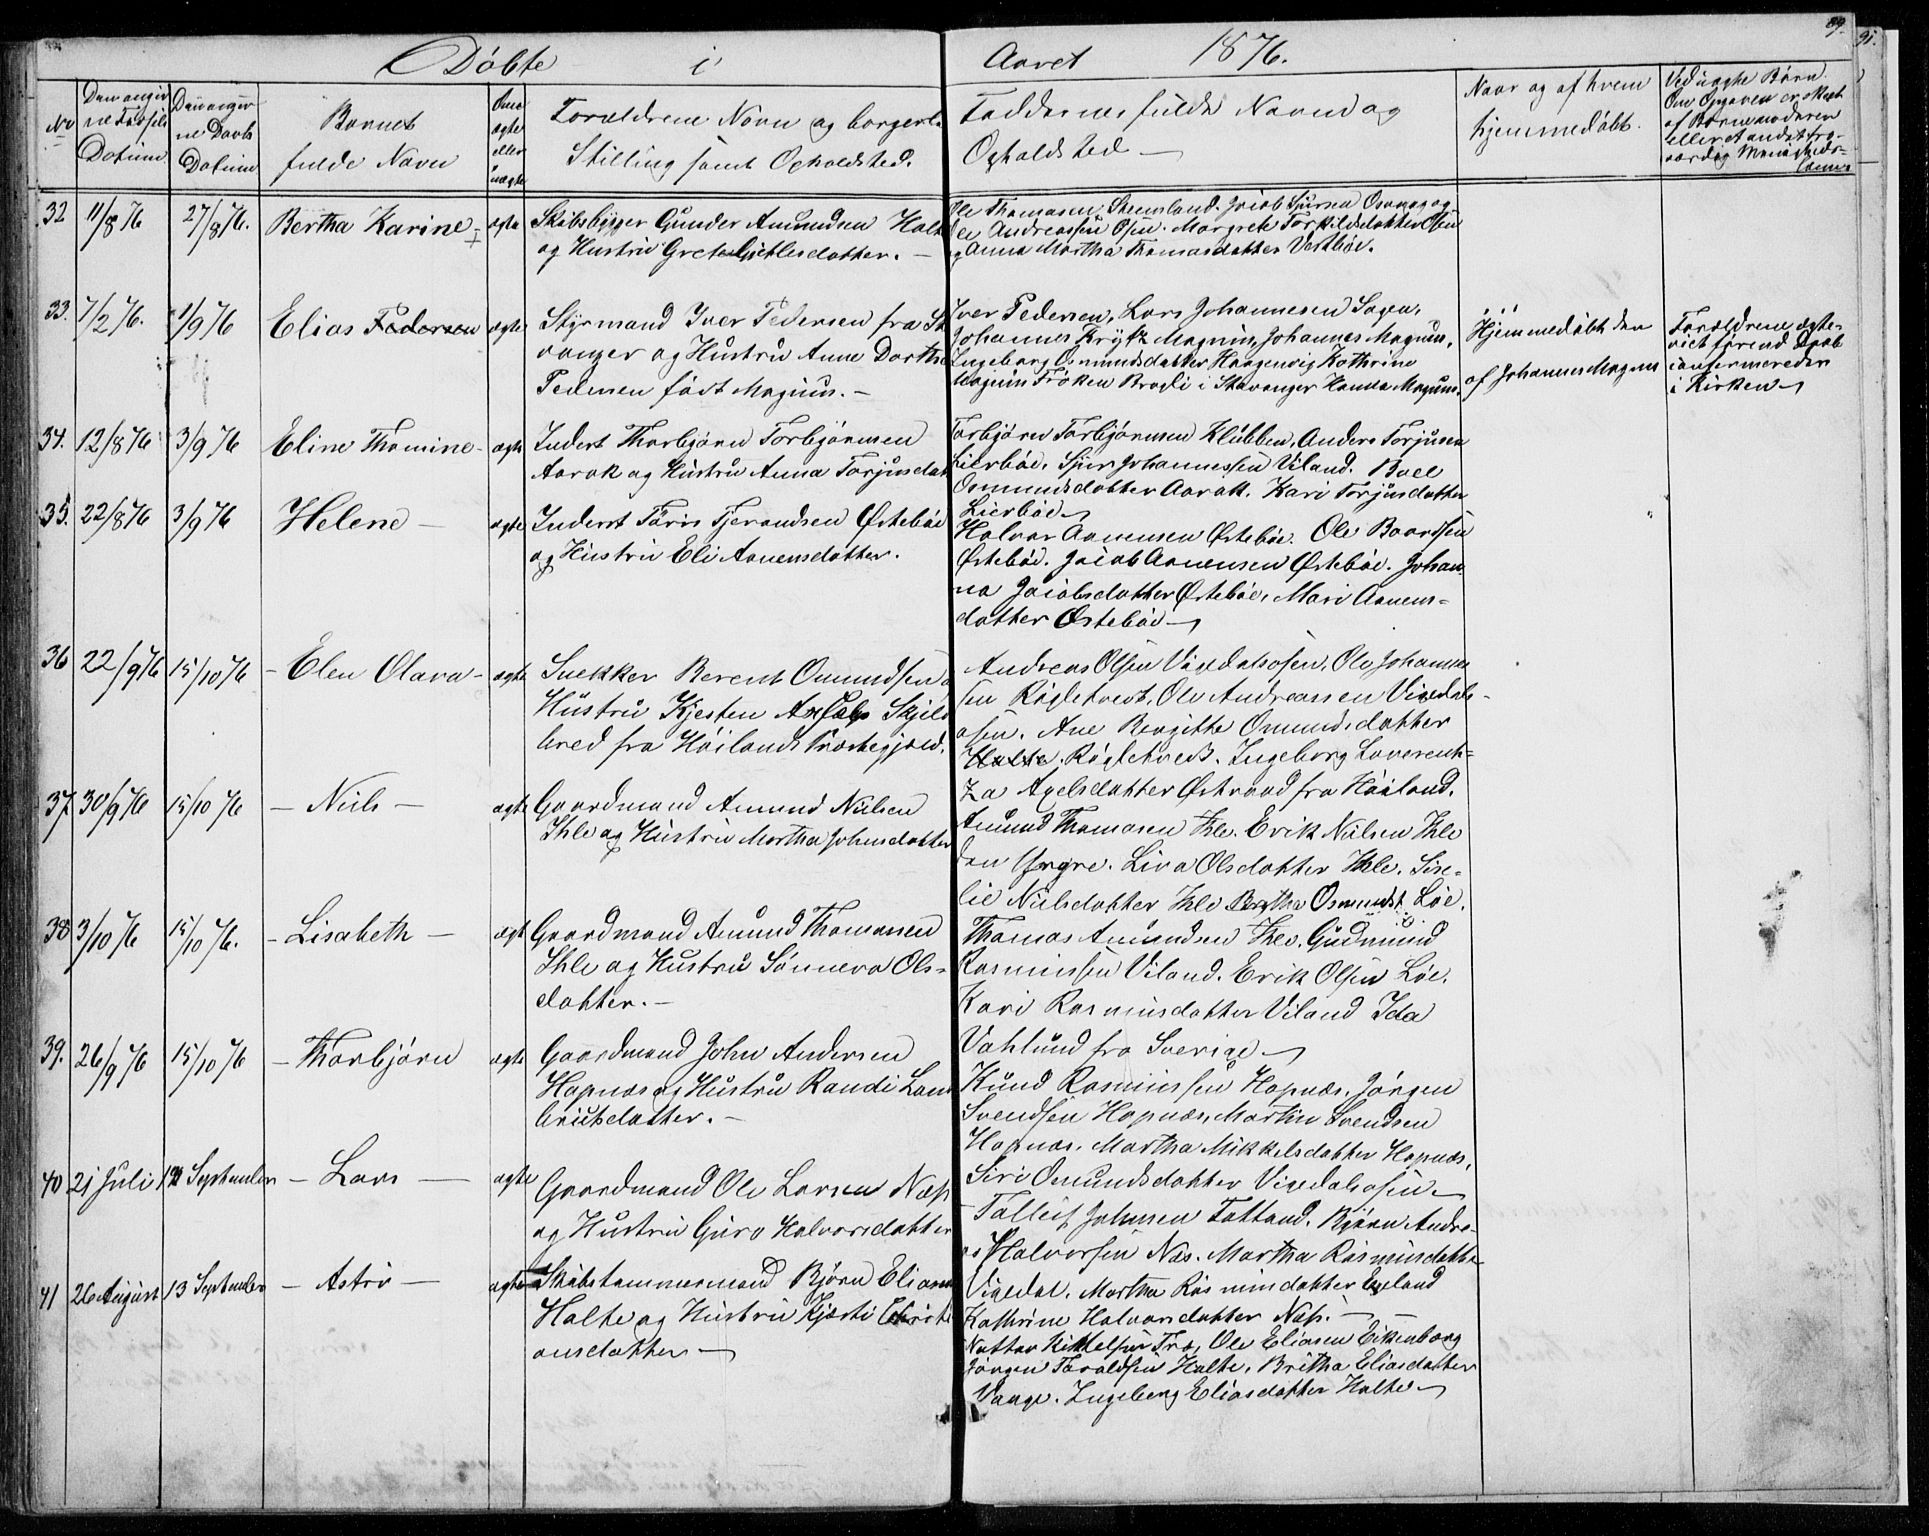 Döbte i Aaret 1876.
89.
91.
No
Den angivne Fødsels Datum
Den angivne Daabs Datum
Barnets fulde Navn
Om ægte eller uægte
Forældrene Navn og borgerl. Stilling samt Opholdsted.
Faddernes fulde Navn og Opholdsted
Naar og af hvem hjemmedøbt.
Ved uægte Børn. Om Opgaven er skeet af Barnemoderen eller et andet troværdig
32 11/8 76 27/8 76. Bertha Karine ægte
Skibsbygger Gunder Amundsen Halte
og Hustru Grete
Ole Thomasen Jacob
Andreassen Osen. Margrete Torkildsdatter Osen
og Anna Martha Thomasdatter Vestbøe.
33. 7/2 76. 1/9 76 Elias Pedersen ægte
Styrmand Iver Pedersen fra Stavanger og Hustru Anne Dorthea
Pedersen født Magnus.
Iver Pedersen, Lars Johannesen Sagen,
Johannes Magnus, Johannes Magnus,
Ingeborg Osmundsdatter Haagenvig Kathrine
Magnus Frøken i Stavanger Hanna Magnus.
Hjemmedøbt den
af Johannes Magnus
Forældrene ægteviet førend Daab
i Kirken
34. 12/8 76 3/9 76 Eline Thomine ægte
Inderst Thorbjørn Torbjørnsen
Aarak og Hustru Anna Torjusdat
Torbjørn Torbjørnsen Klubben. Anders Torjusen
Lierbøe. Sjur Johannessen Viland. Boel
Osmundsdatter Aarak. Kari Torjusdatter
Lierbøe
35. 22/8 76 3/9 76 Helene ægte
Inderst Tøris Tjerandsen Østebøe
og Hustru Eli Aanensdatter.
Halvor Aanensen Østebøe. Ole Baardsen
Østebøe. Jacob Aanensen Østebøe. Johanna Jacobsdatter Østebøe, Mari Aanensdatter Østebøe
36 22/9 76 15/10 76 Elen Olava ægte
Snekker Berent Omundsen
Hustru Kjesten Axels Skjilbred fra Høilands Præstegjeld.
Andreas Olsen Vigedalsosen. Ole Johannessen Røgletvedt, Ole Andreassen Vigedalsosen. Ane Bergitte Omundsdatter
Halte. Røgletvedt. Ingeborg Laverentza Axelsdatter Østraad fra Høiland.
37 30/9 76 15/10 76 Niels ægte
Gaardmand Amund Nielsen
Ihle og Hustru Martha Johnsdatter
Amund Thomasen Ihle. Erik Nielsen Ihle
den Yngre. Liva Olsdatter Ihle. Siselie Nielsdatter Ihle Bertha Osmundst Løe.
38 3/10 76 15/10 76. Lisabeth ægt
Gaardmand Amund Thomassen
Ihle og Hustru Sønneva Olsdatter.
Thomas Amundsen Ihle. Gudmund
Rasmussen Viland. Erik Olsen Løe.
Kari Rasmusdatter Viland Ida
Vahlund fra Sverige
39. 26/9 76 15/10 76 Thorbjørn ægte
Gaardmand John Andersen
Hapnæs og Hustru Randi Lauritsdatter.
Knud Rasmussen Hapnæs. Jørgen
Svendsen Hapnæs. Martin Svendsen
Hapnæs. Martha Mikkelsdatter Hapnæs.
Siri Omundsdatter Vigedalsosen
40 21 Juli September Lars ægte
Gaardmand Ole Larsen Næs
og Hustru Guro Halvorsdatter
Tolleif Johnsen Tatland. Bjørn Andreas Halvorsen Næs. Martha Rasmusdatter
Vigedal. Martha Rasmusdatter Egeland
Kathrine Halvorsdatter Næs.
41 26 August 13 September Astri ægte
Skibstømmermand Bjørn Eliasen
Halte og Hustru Kjersti
ansdatter
Nottar Kittelsen Tro. Ole Eliasen Eikenborg
Jørgen Taraldsen Halte. Britha Eliasdatter
Vaage. Ingeborg Eliasdatter Halte